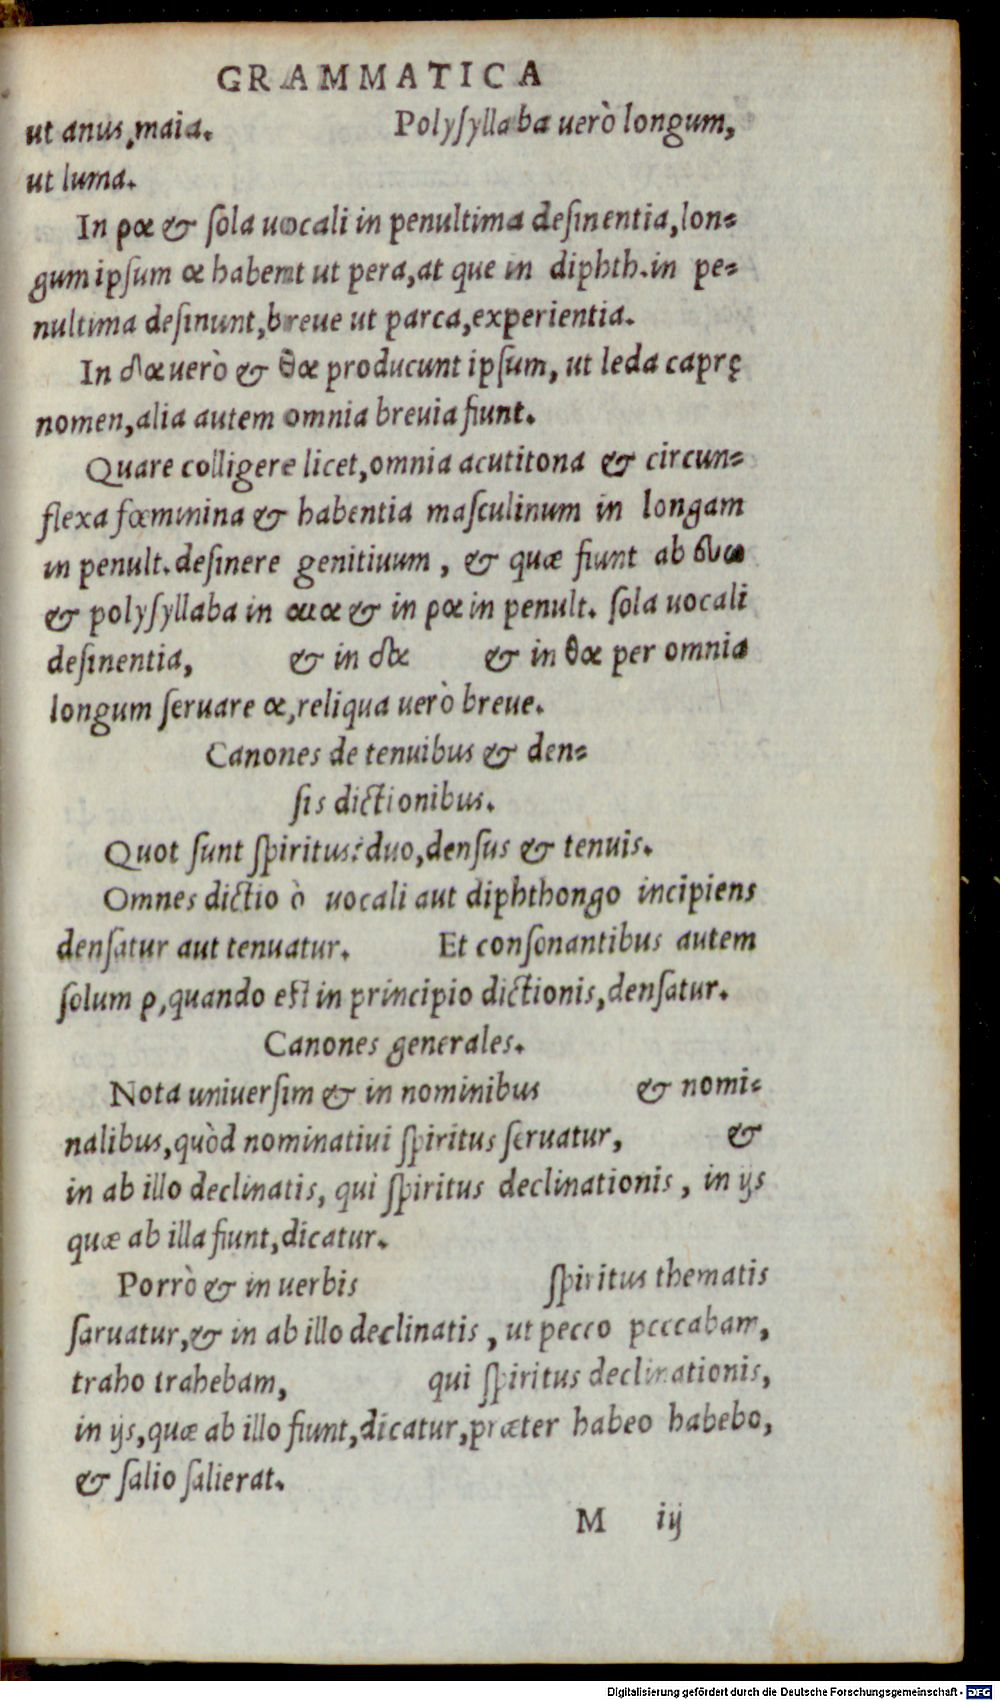 GRAMMATICA
ut anus, maia. Polysyllaba uerò longum,
ut luma.
In ρα & sola uocali in penultima desinentia, lon-
gum ipsum α habent ut pera, at que in diphth. in pe-
nultima desinunt, breue ut parca, experientia.
In δα uerò & θα producunt ipsum, ut leda caprę
nomen, alia autem omnia breuia fiunt.
Quare colligere licet, omnia acutitona & circun-
flexa fœminina & habentia masculinum in longam
in penult. desinere genitiuum, & quæ fiunt ab
& polysyllaba in αια & in ρα in penult. sola uocali
desinentia, & in δα & in θα per omnia
longum seruare α, reliqua uerò breue.
Canones de tenuibus & den-
sis dictionibus.
Quot sunt spiritus? duo, densus & tenuis.
Omnes dictio ò uocali aut diphthongo incipiens
densatur aut tenuatur. Et consonantibus autem
solum ρ, quando est in principio dictionis, densatur.
Canones generales.
Nota uniuersim & in nominibus & nomi-
nalibus, quòd nominatiui spiritus seruatur, &
in ab illo declinatis, qui spiritus declinationis, in ijs
quæ ab illa fiunt, dicatur.
Porrò & in uerbis spiritus thematis
saruatur, & in ab illo declinatis, ut pecco peccabam,
traho trahebam, qui spiritus declinationis,
in ijs, quæ ab illo fiunt, dicatur, præter habeo habebo,
& salio salierat.
M iij
Digitalisierung gefördert durch die Deutsche Forschungsgemeinschaft - DFG